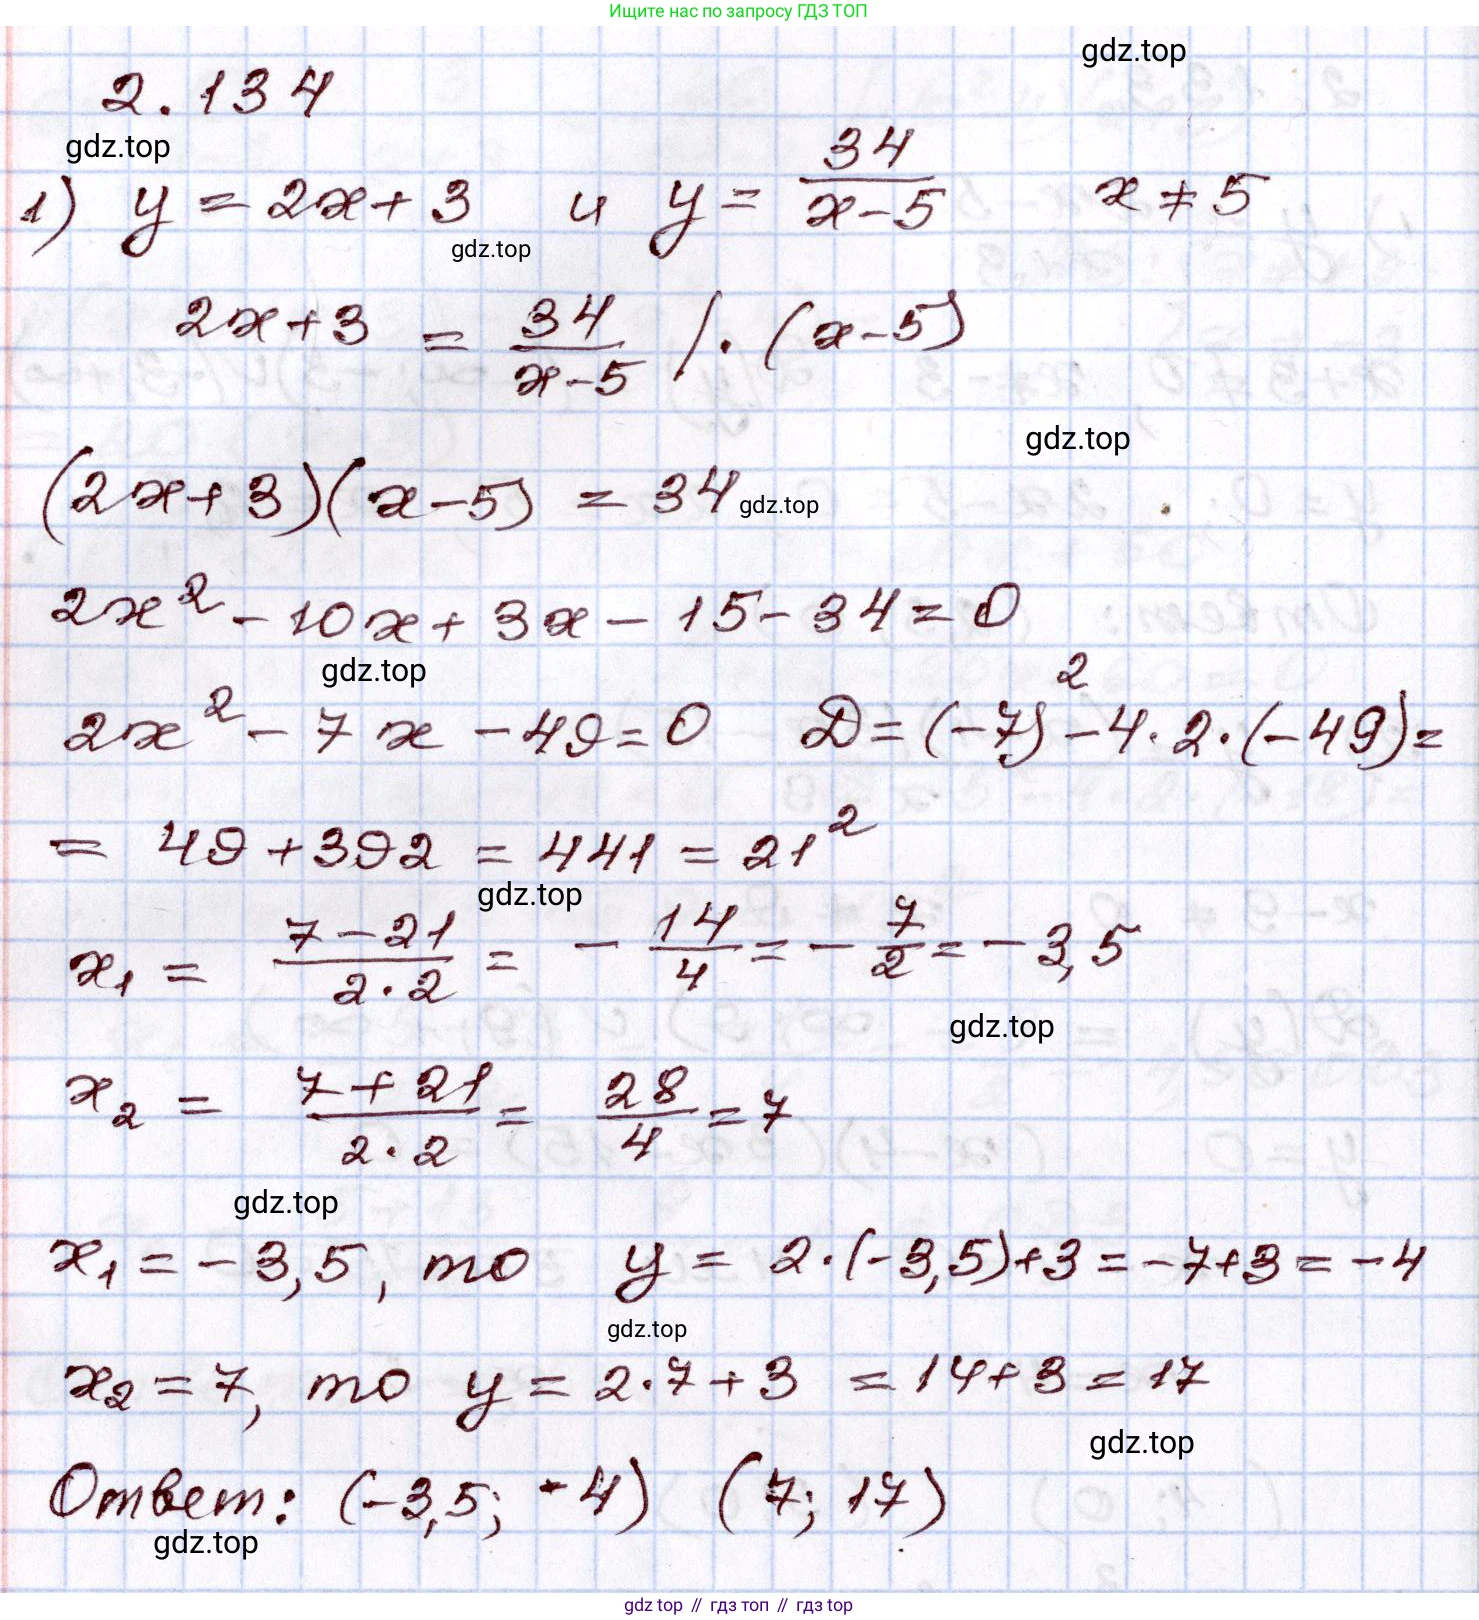 Ищите нас по запросу ГДЗ ТОП
gdz.top
2.134
gdz.top
1) y = 2x + 3 и y = 34/(x-5) x ≠ 5
gdz.top
2x + 3 = 34/(x-5) / · (x-5)
gdz.top
(2x+3)(x-5) = 34
gdz.top
2x² - 10x + 3x - 15 - 34 = 0
gdz.top
2x² - 7x - 49 = 0 D = (-7)² - 4·2·(-49) =
= 49 + 392 = 441 = 21²
gdz.top
x₁ = (7-21)/(2·2) = - 14/4 = - 7/2 = - 3,5
gdz.top
x₂ = (7+21)/(2·2) = 28/4 = 7
gdz.top
x₁ = -3,5, то y = 2·(-3,5)+3 = -7+3 = -4
gdz.top
x₂ = 7, то y = 2·7+3 = 14+3 = 17
gdz.top
Ответ: (-3,5; -4) (7; 17)
gdz.top
gdz top // гдз топ // гдз top